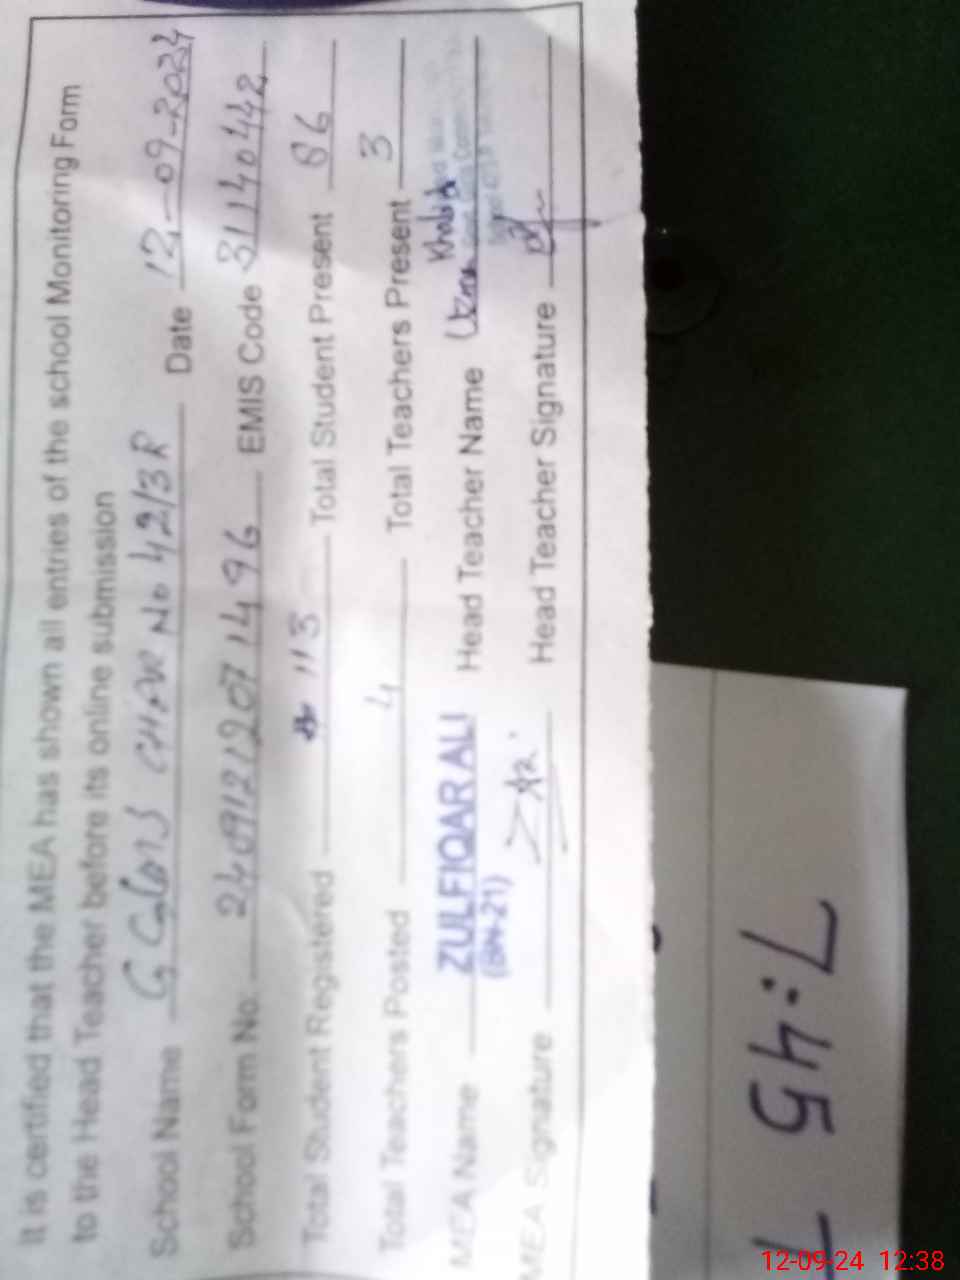 It is certified that the MEA has shown all entries of the school Monitoring Form
to the Head Teacher before its online submission
School Name G GCMS CHAK No 42/3R Date 12-09-2024
School Form No. 24091212071496 EMIS Code 31140442
Total Student Registered 113 Total Student Present 86
Total Teachers Posted 4 Total Teachers Present 3
MEA Name ZULFIQAR ALI Head Teacher Name Uzma Khalid
(BN-21)
MEA Signature Head Teacher Signature
7:45
12-09-24 12:38